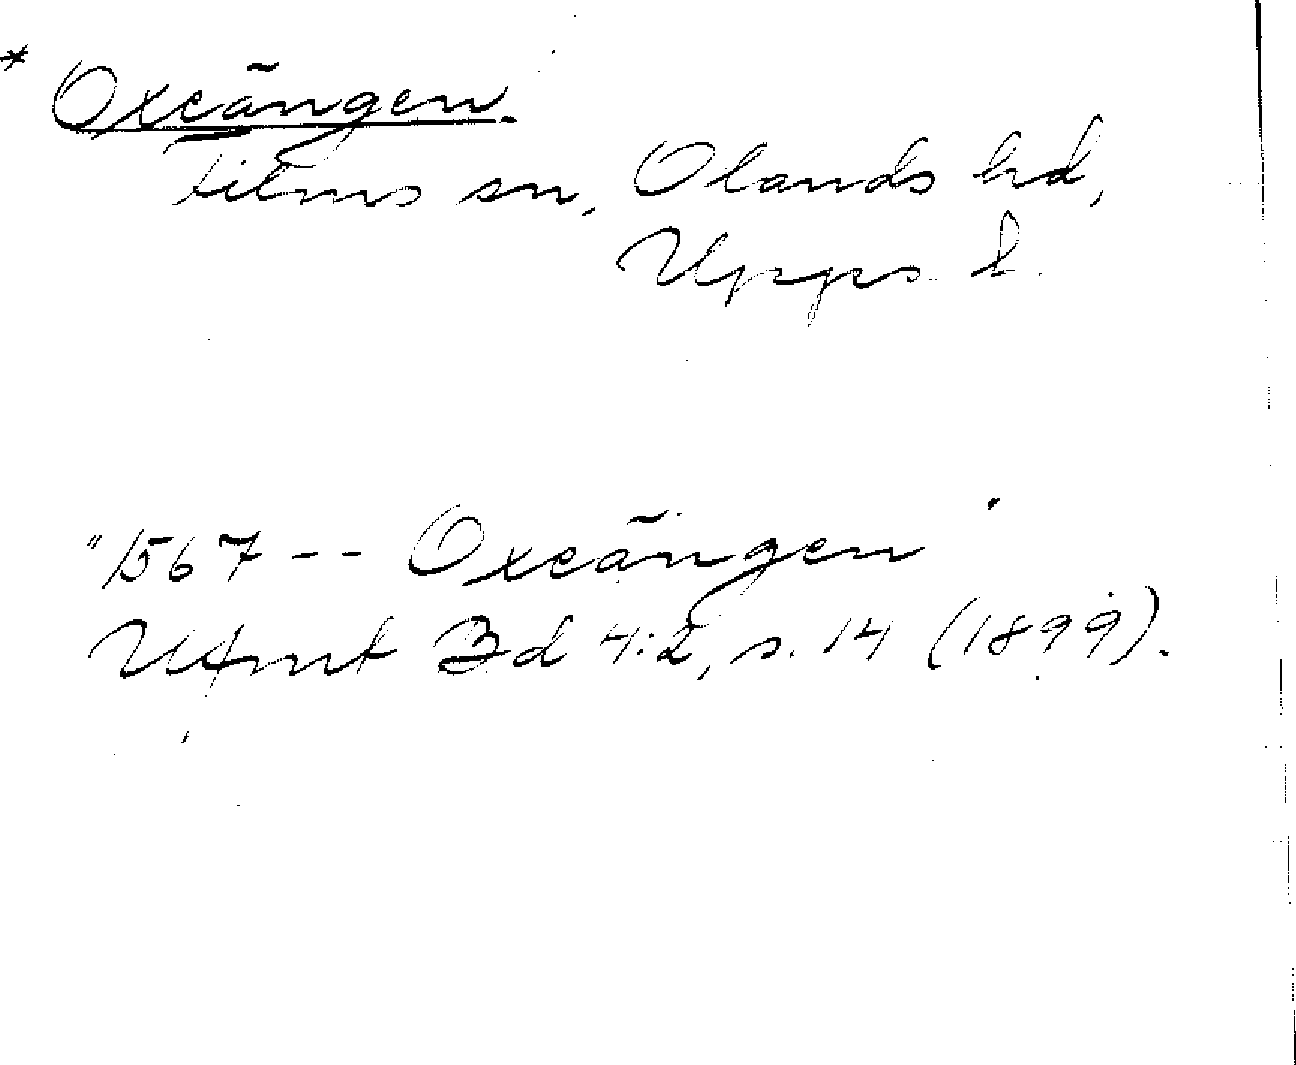 * Oxeängen.
Films sn, Olands hd,
Upps. l.
"1567 -- Oxeängen"
Ufmt Bd 4:2, s. 14 (1899).